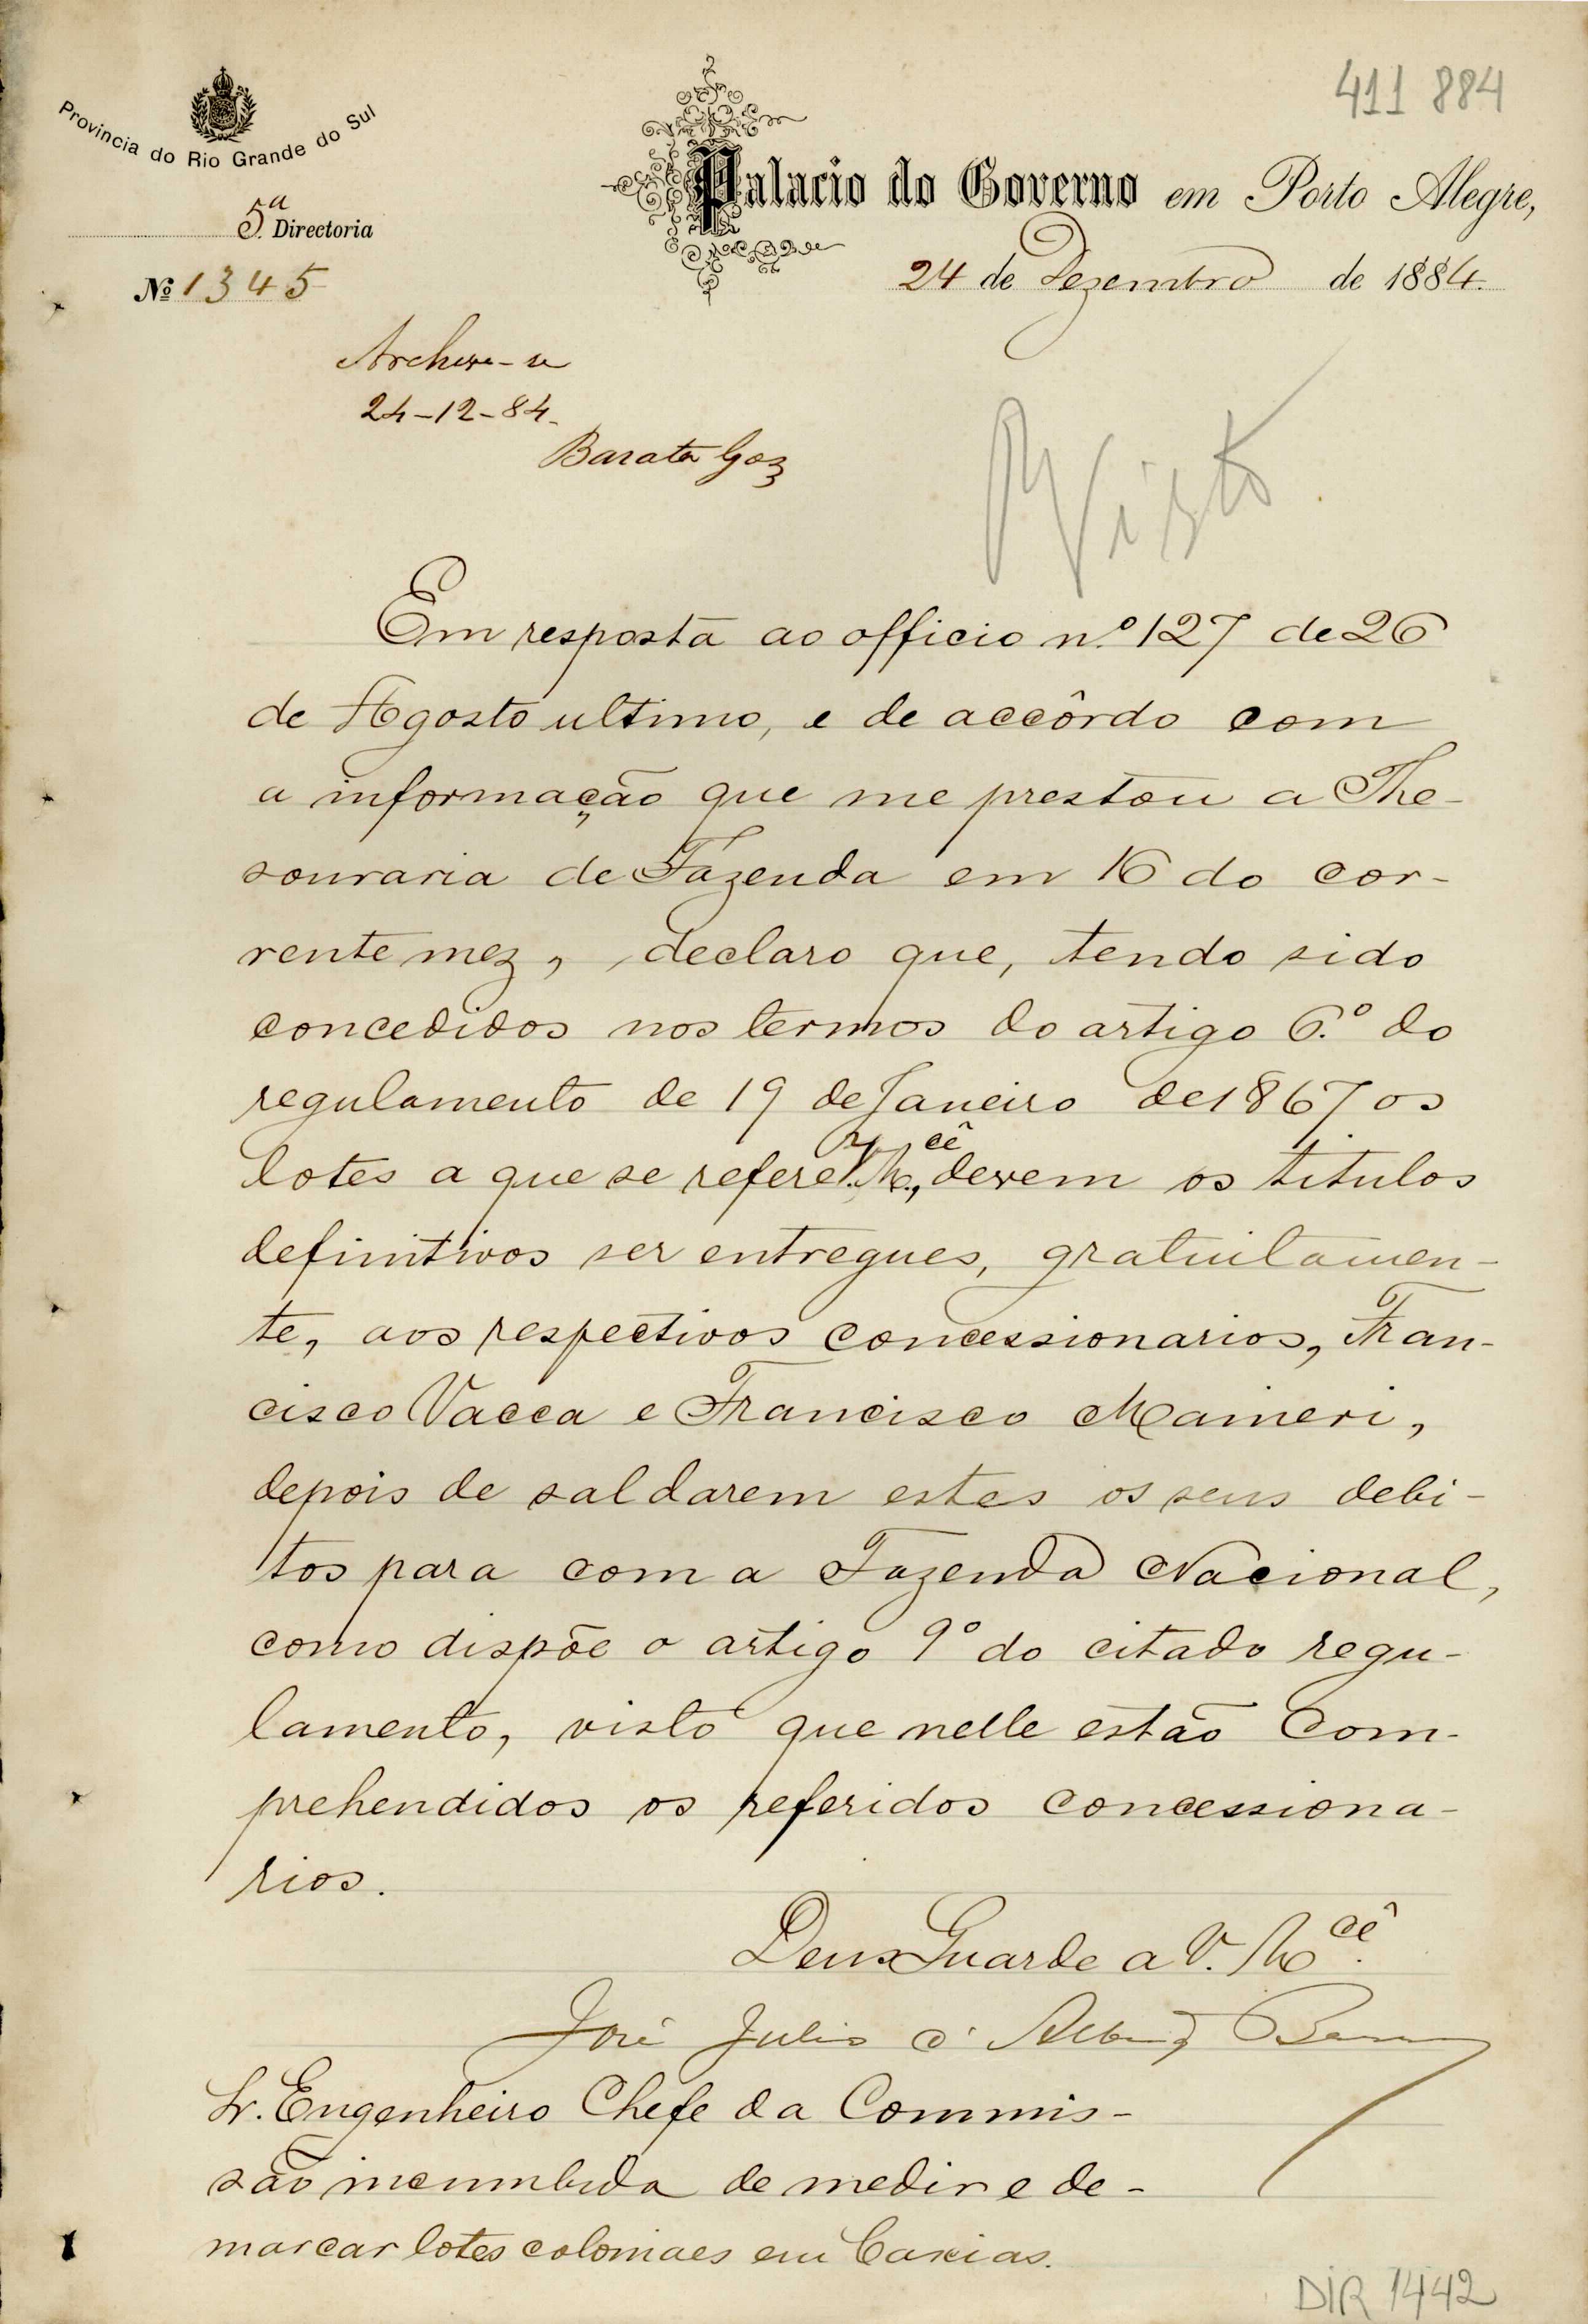 411 884
Provincia do Rio Grande do Sul
Palacio do Governo em Porto Alegre,
5.ª Directoria
24 de Dezembro de 1884.
Nº 1345
Archive-se
24-12-84.
Barata Goz
Visto
Em resposta ao officio n.º 127 de 26
de Agosto ultimo, e de accôrdo com
a informação que me prestou a The-
souraria de Fazenda em 16 do cor-
rente mez, declaro que, tendo sido
concedidos nos termos do artigo 6.º do
regulamento de 19 de Janeiro de 1867 os
lotes a que se refere V. M.cê, devem os titulos
definitivos ser entregues, gratuitamen-
te, aos respectivos concessionarios, Fran-
cisco Vacca e Francisco Maineri,
depois de saldarem estes os seus debi-
tos para com a Fazenda Nacional,
como dispõe o artigo 9º do citado regu-
lamento, visto que nelle estão com-
prehendidos os referidos concessiona-
rios.
Deus Guarde a V. M.cê
José Julio d'Albuq Barros
Sr. Engenheiro Chefe da Commis-
são incumbida de medir e de-
marcar lotes coloniaes em Caxias.
DIR 1442